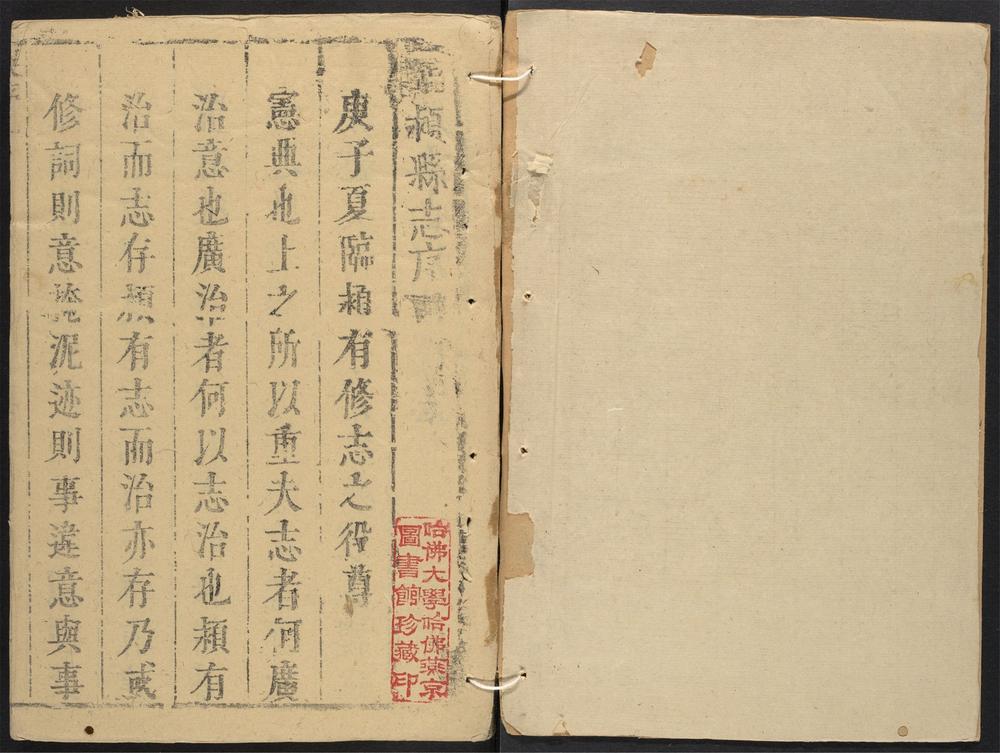 臨潁縣志序
庚子夏臨潁有修志之役尊
憲典也上之所以重夫志者何廣
治意也廣治者何以志治也潁有
治而志存潁有志而治亦存乃或
修詞則意掩泥迹則事違意與事
哈佛大學哈佛燕京
圖書館珍藏印